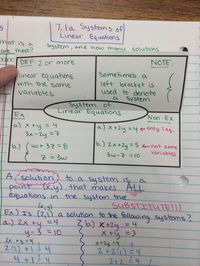 7.1a Systems of
Linear Equations
What is a
System, and how many solutions
are there?
DEF: 2 or more
linear equations
with the same
variables
NOTE:
Sometimes a
left bracket is
used to denote
a system
System of
Linear Equations
Ex:
a.) x + y = 4
3x - 2y = 7
b.) w + 3z = 8
z = 3w
Non-Ex
a.) x + 2y = 4 only 1 eq.
b.) 2x + 2y = 5 not same
variables
3w - z = 10
A solution to a system is a
point (x,y) that makes ALL
equations in the system true
SUBSTITUTE!!!
(x,y)
Ex.) Is (2,1) a solution to the following systems?
a.) 2x + y = 4
y - 5 = 10
b.) x + 2y = 4
x + y = 3
2x + y = 4
x + 2y = 4
2(2) + 1 = 4
2 + 2(1) = 4
4 + 1 = 4
2 + 2 = 4